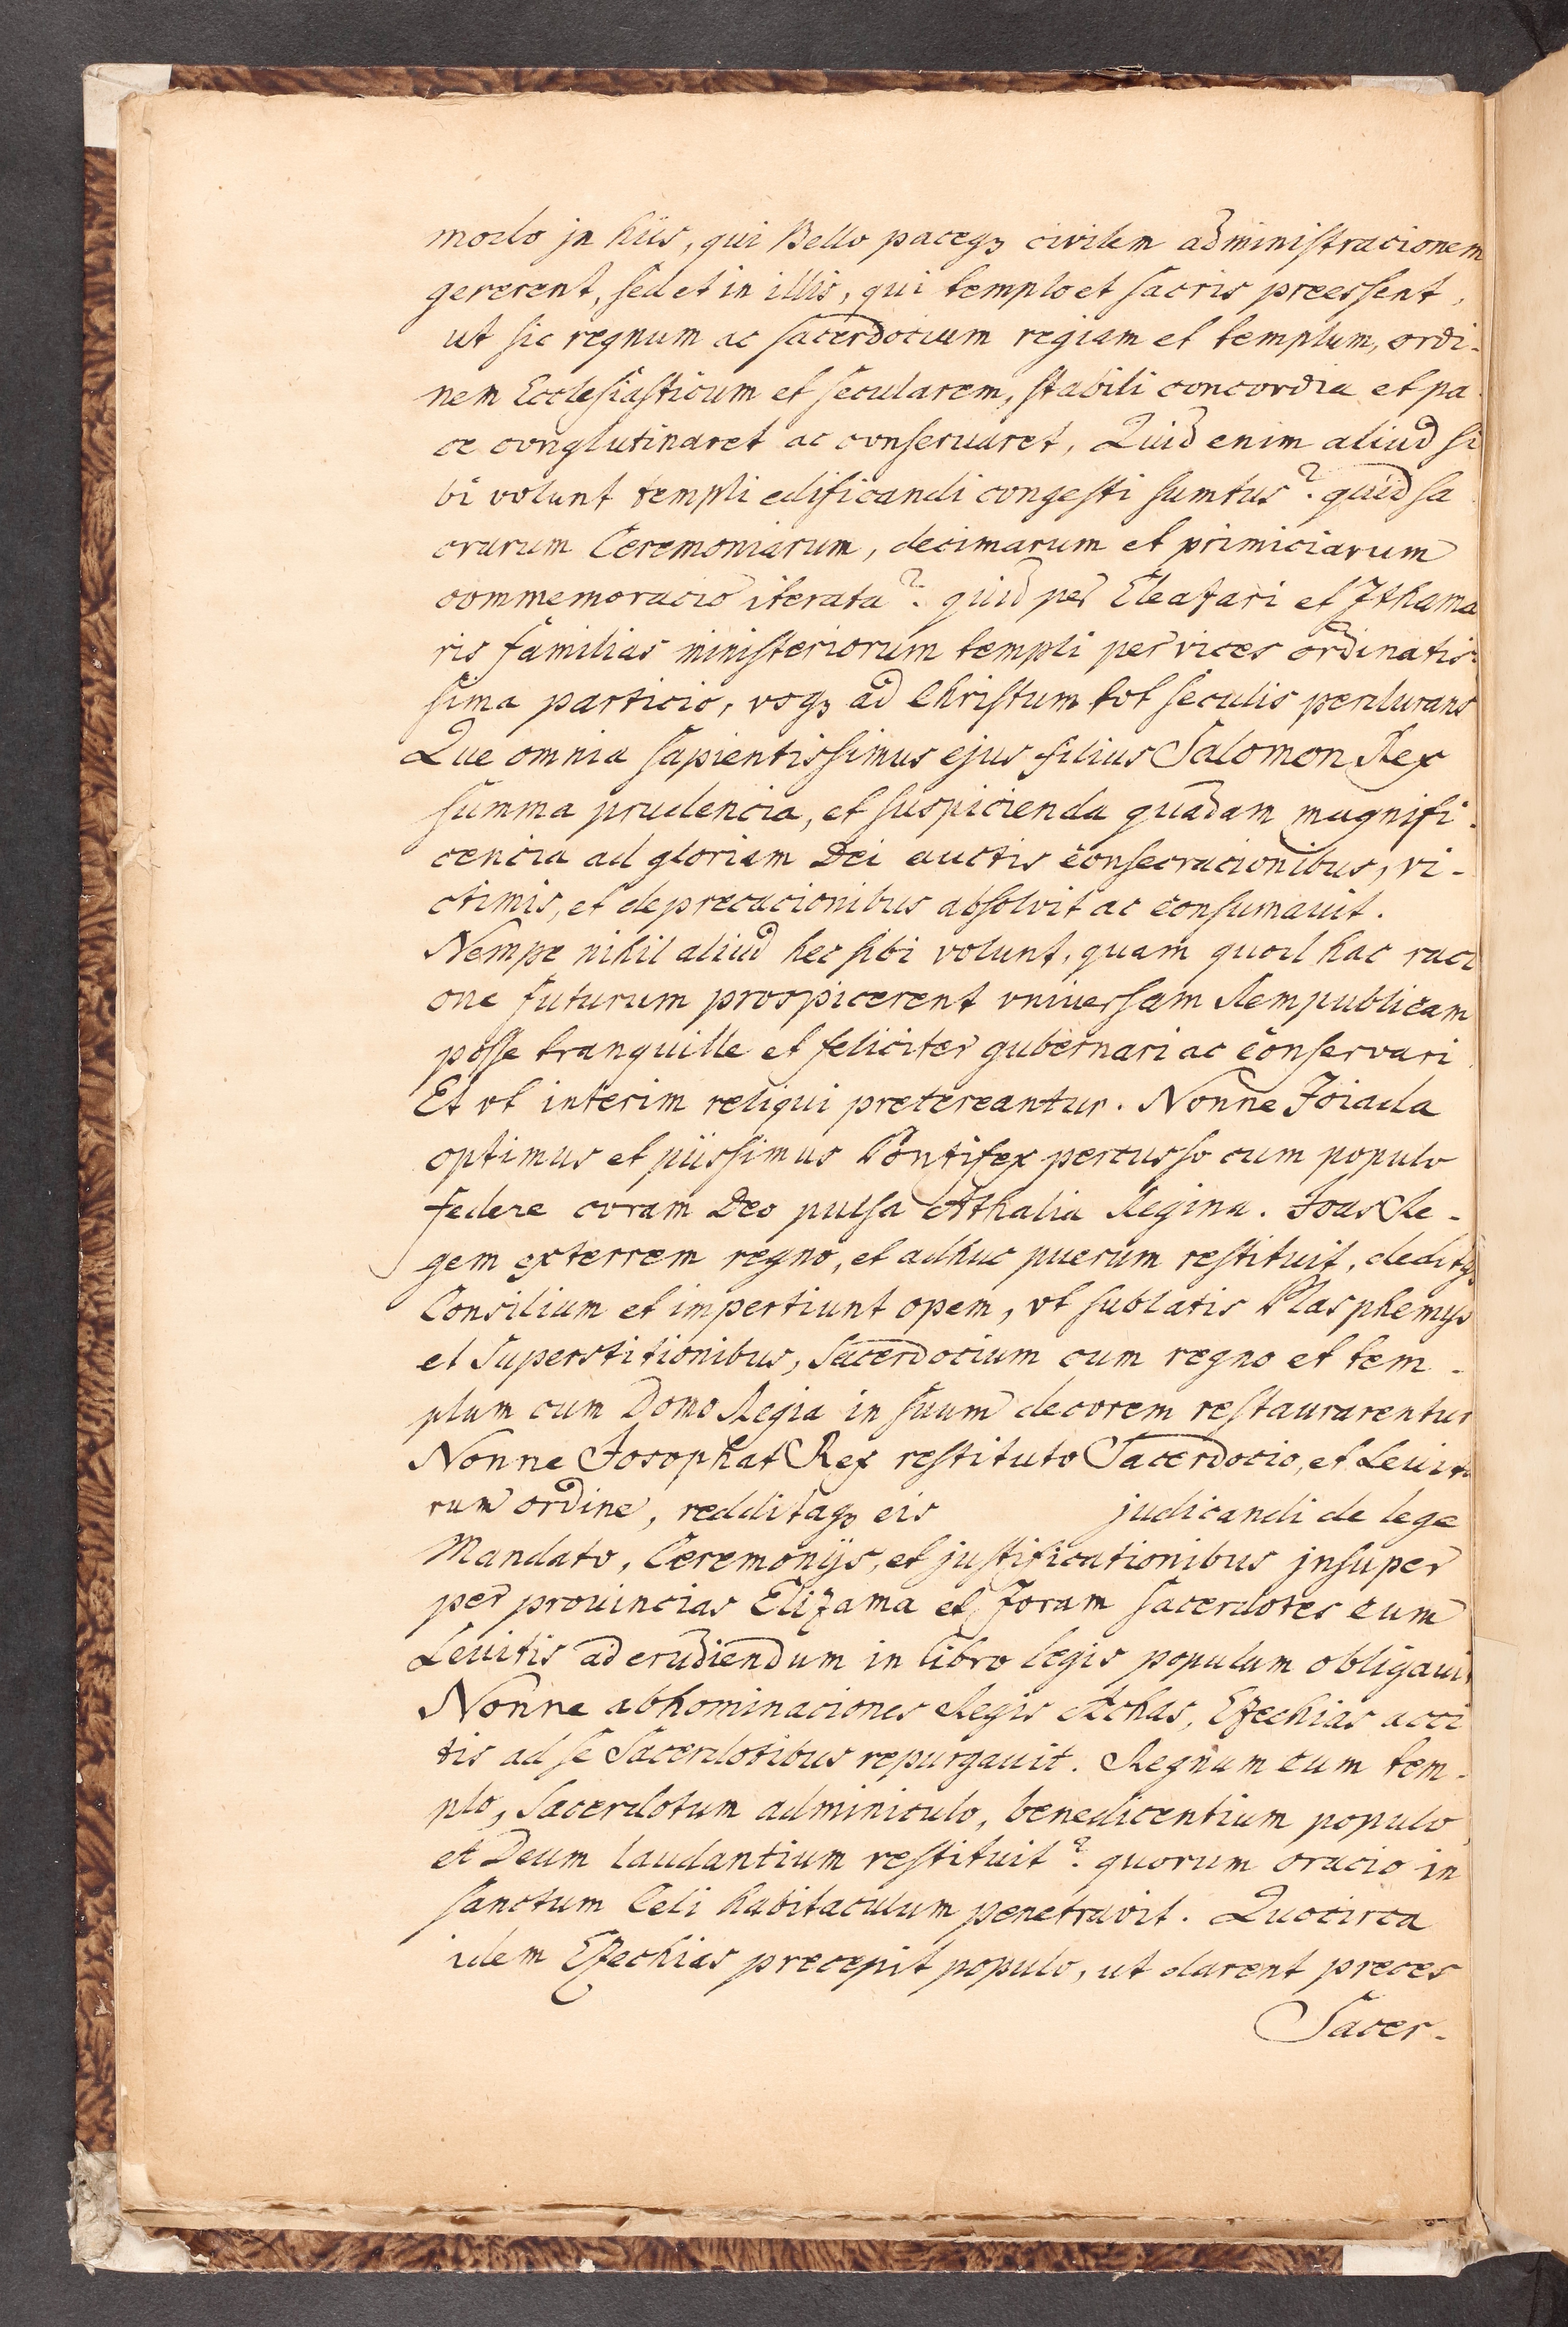 modo jn hiis, qui Bello pacegȝ civilem administracionem
gererent, sed et in illis, qui templo et sacris preessent,
ut sic regnum ac sacerdocium regiam et templum, ordi-
nem Ecclesiasticum et secularem, stabili concordia et pa
ce conglutinaret ac conservaret, Quid enim aliud si
bi volunt templi edificandi congesti sumtus? quid sa
crarum Ceremoniarum, decimarum et primiciarum
commemoracio iterata? quid per Eleazari et Ithama
ris familias ministeriorum templi per vices ordinatis-
sima particio, vsqȝ ad Christum tot seculis perdurans
Que omnia sapientissimus ejus filius Salomon Rex
summa prudencia, et suspicienda quadam magnifi-
cencia ad gloriam Dei auctis consecracionibus, vi-
ctimis, et deprecacionibus absolvit ac consumauit.
Nempe nihil aliud hec sibi volunt, quam quod hac raci
one futurum prospicerent vniuersam Rempublicam
posse tranquille et feliciter gubernari ac conservari
Et vt interim reliqui pretereantur. Nonne Joiada
optimus et piissimus Pontifex percusso cum populo
federe coram Deo pulsa Athalia Regina. Joas Re-
gem exterrem regno, et adhuc puerum restituit, deditqȝ
Consilium et impertiunt opem, vt sublatis Blasphemijs
et Superstitionibus, Sacerdocium cum regno et tem-
plum cum Domo Regia in suum decorem restaurarentur
Nonne Josophat Rex restituto Sacerdocio, et Leuita
rum ordine, redditaqȝ eis judicandi de lege
Mandato, Ceremonijs, et justificationibus jnsuper
per prouincias Elizama et Joram sacerdotes cum
Leuitis ad erudiendum in libro legis populum obligauit
Nonne abhominaciones Regis Achas, Ezechias acci
tis ad se Sacerdotibus repurgauit. Regnum cum tem-
plo, Sacerdotum adminiculo, benedicentium populo,
et Deum laudantium restituit? quorum oracio in
sanctum Celi habitaculum penetravit. Quocirca
idem Ezechias precepit populo, ut darent preces
Sacer-